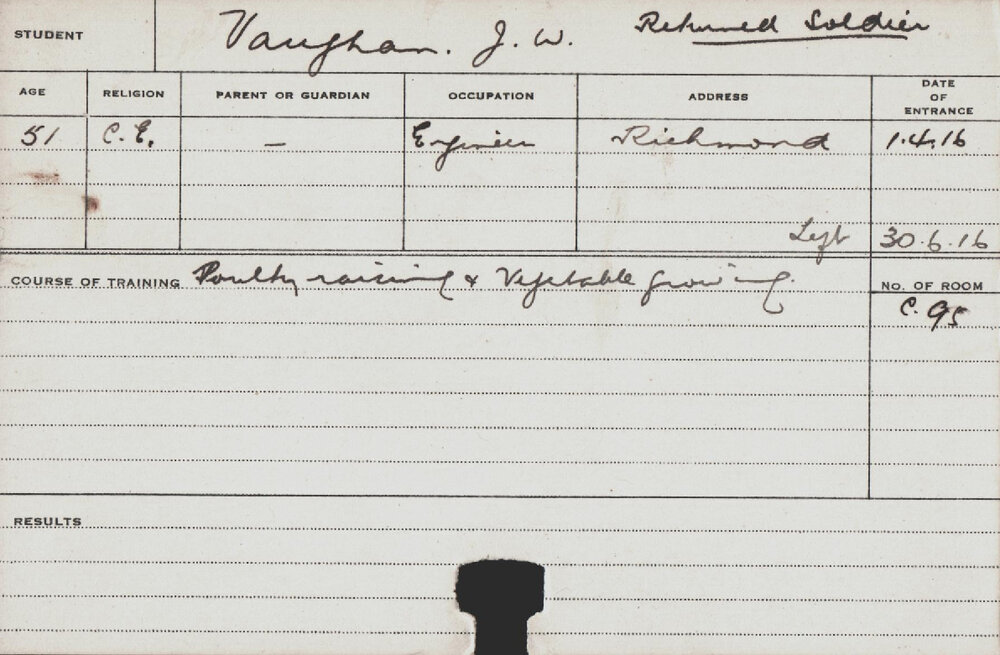 STUDENT Vaughan. J. W. Returned Soldier
AGE RELIGION PARENT OR GUARDIAN OCCUPATION ADDRESS DATE OF ENTRANCE
51 C. E. — Engineer Richmond 1.4.16
Left 30.6.16
COURSE OF TRAINING Poultry raising & Vegetable growing.
NO. OF ROOM
C. 95
RESULTS